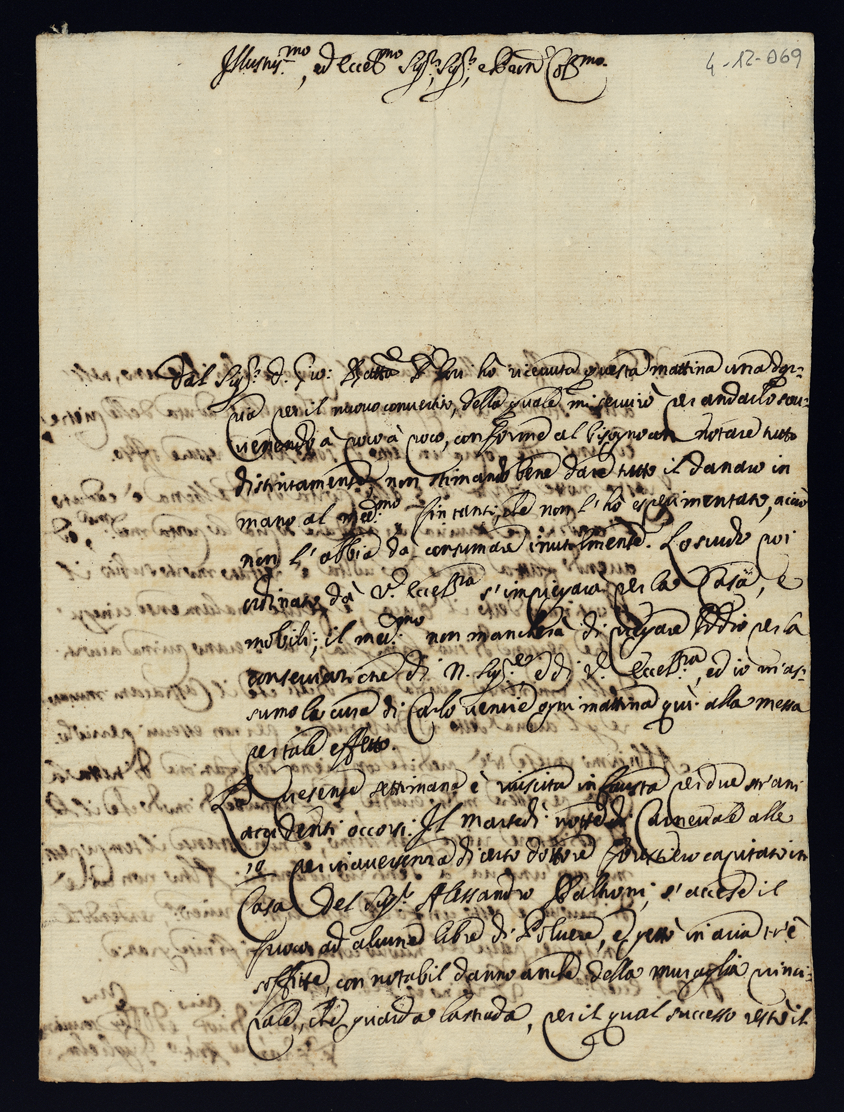 Illustris.mo, ed Eccell.mo Sig.r, Sig.r, e Padron Col.mo
4-12-069
Dal Sig.r D. Gio: Batta hò riceuuta questa mattina una dop-
pia per il nuovo conuertito, della quale mi seruirò per andarlo sou-
uenendo à poco à poco, conforme al bisogno con notare tutto
distintamente non stimando bene dare tutto il danaro in
mano al med.mo fin tanto, che non l'hò esperimentato, acciò
non l'abbia da consumare inutilmente. Lo scudo poi
ordinato da V. Eccell.za s'impiegarà per la Casa, e
mobili; il med.mo non mancherà di pregare Iddio per la
conseruazione di N. Sig.re, e di V. Eccell.za, ed io m'as-
sumo la cura di farlo venire ogni mattina quì alla messa
per tale effetto.
La presente settimana è riuscita infausta per due strani
accidenti occorsi. Il martedì notte di Carneuale alle
10 per inauertenza di certo dottore forastiero capitato in
Casa del Sig.r Alessandro s'accese il
fuoco ad alcune libre di Poluere, e gettò in aria trè
soffitte, con notabil danno anche della muraglia princi-
pale, che guarda la strada, per il qual successo restò il